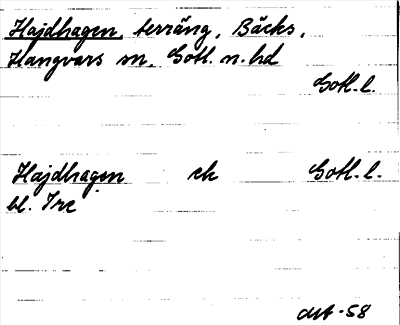 Hajdhagen, terräng, Bäcks,
Hangvars sn, Gotl. n. hd
Gotl. l.
Hajdhagen ek Gotl. l.
bl. Ire
-58